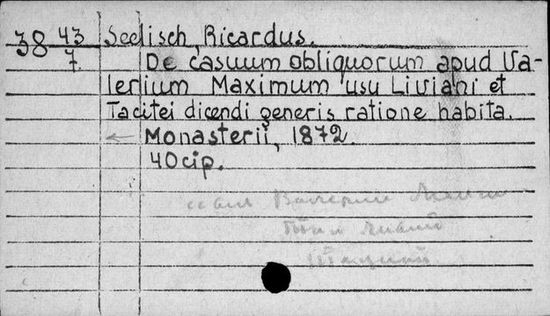 38 43 Seelisch, Ricardus.
7. De casuum obliquorum apud Va-
lerlium Maximum usu Liviani et
Tacitei dicendi generis ratione habita.
← Monasterii, 1872.
40 cip.
Валерий
Тит Ливий
Тацит